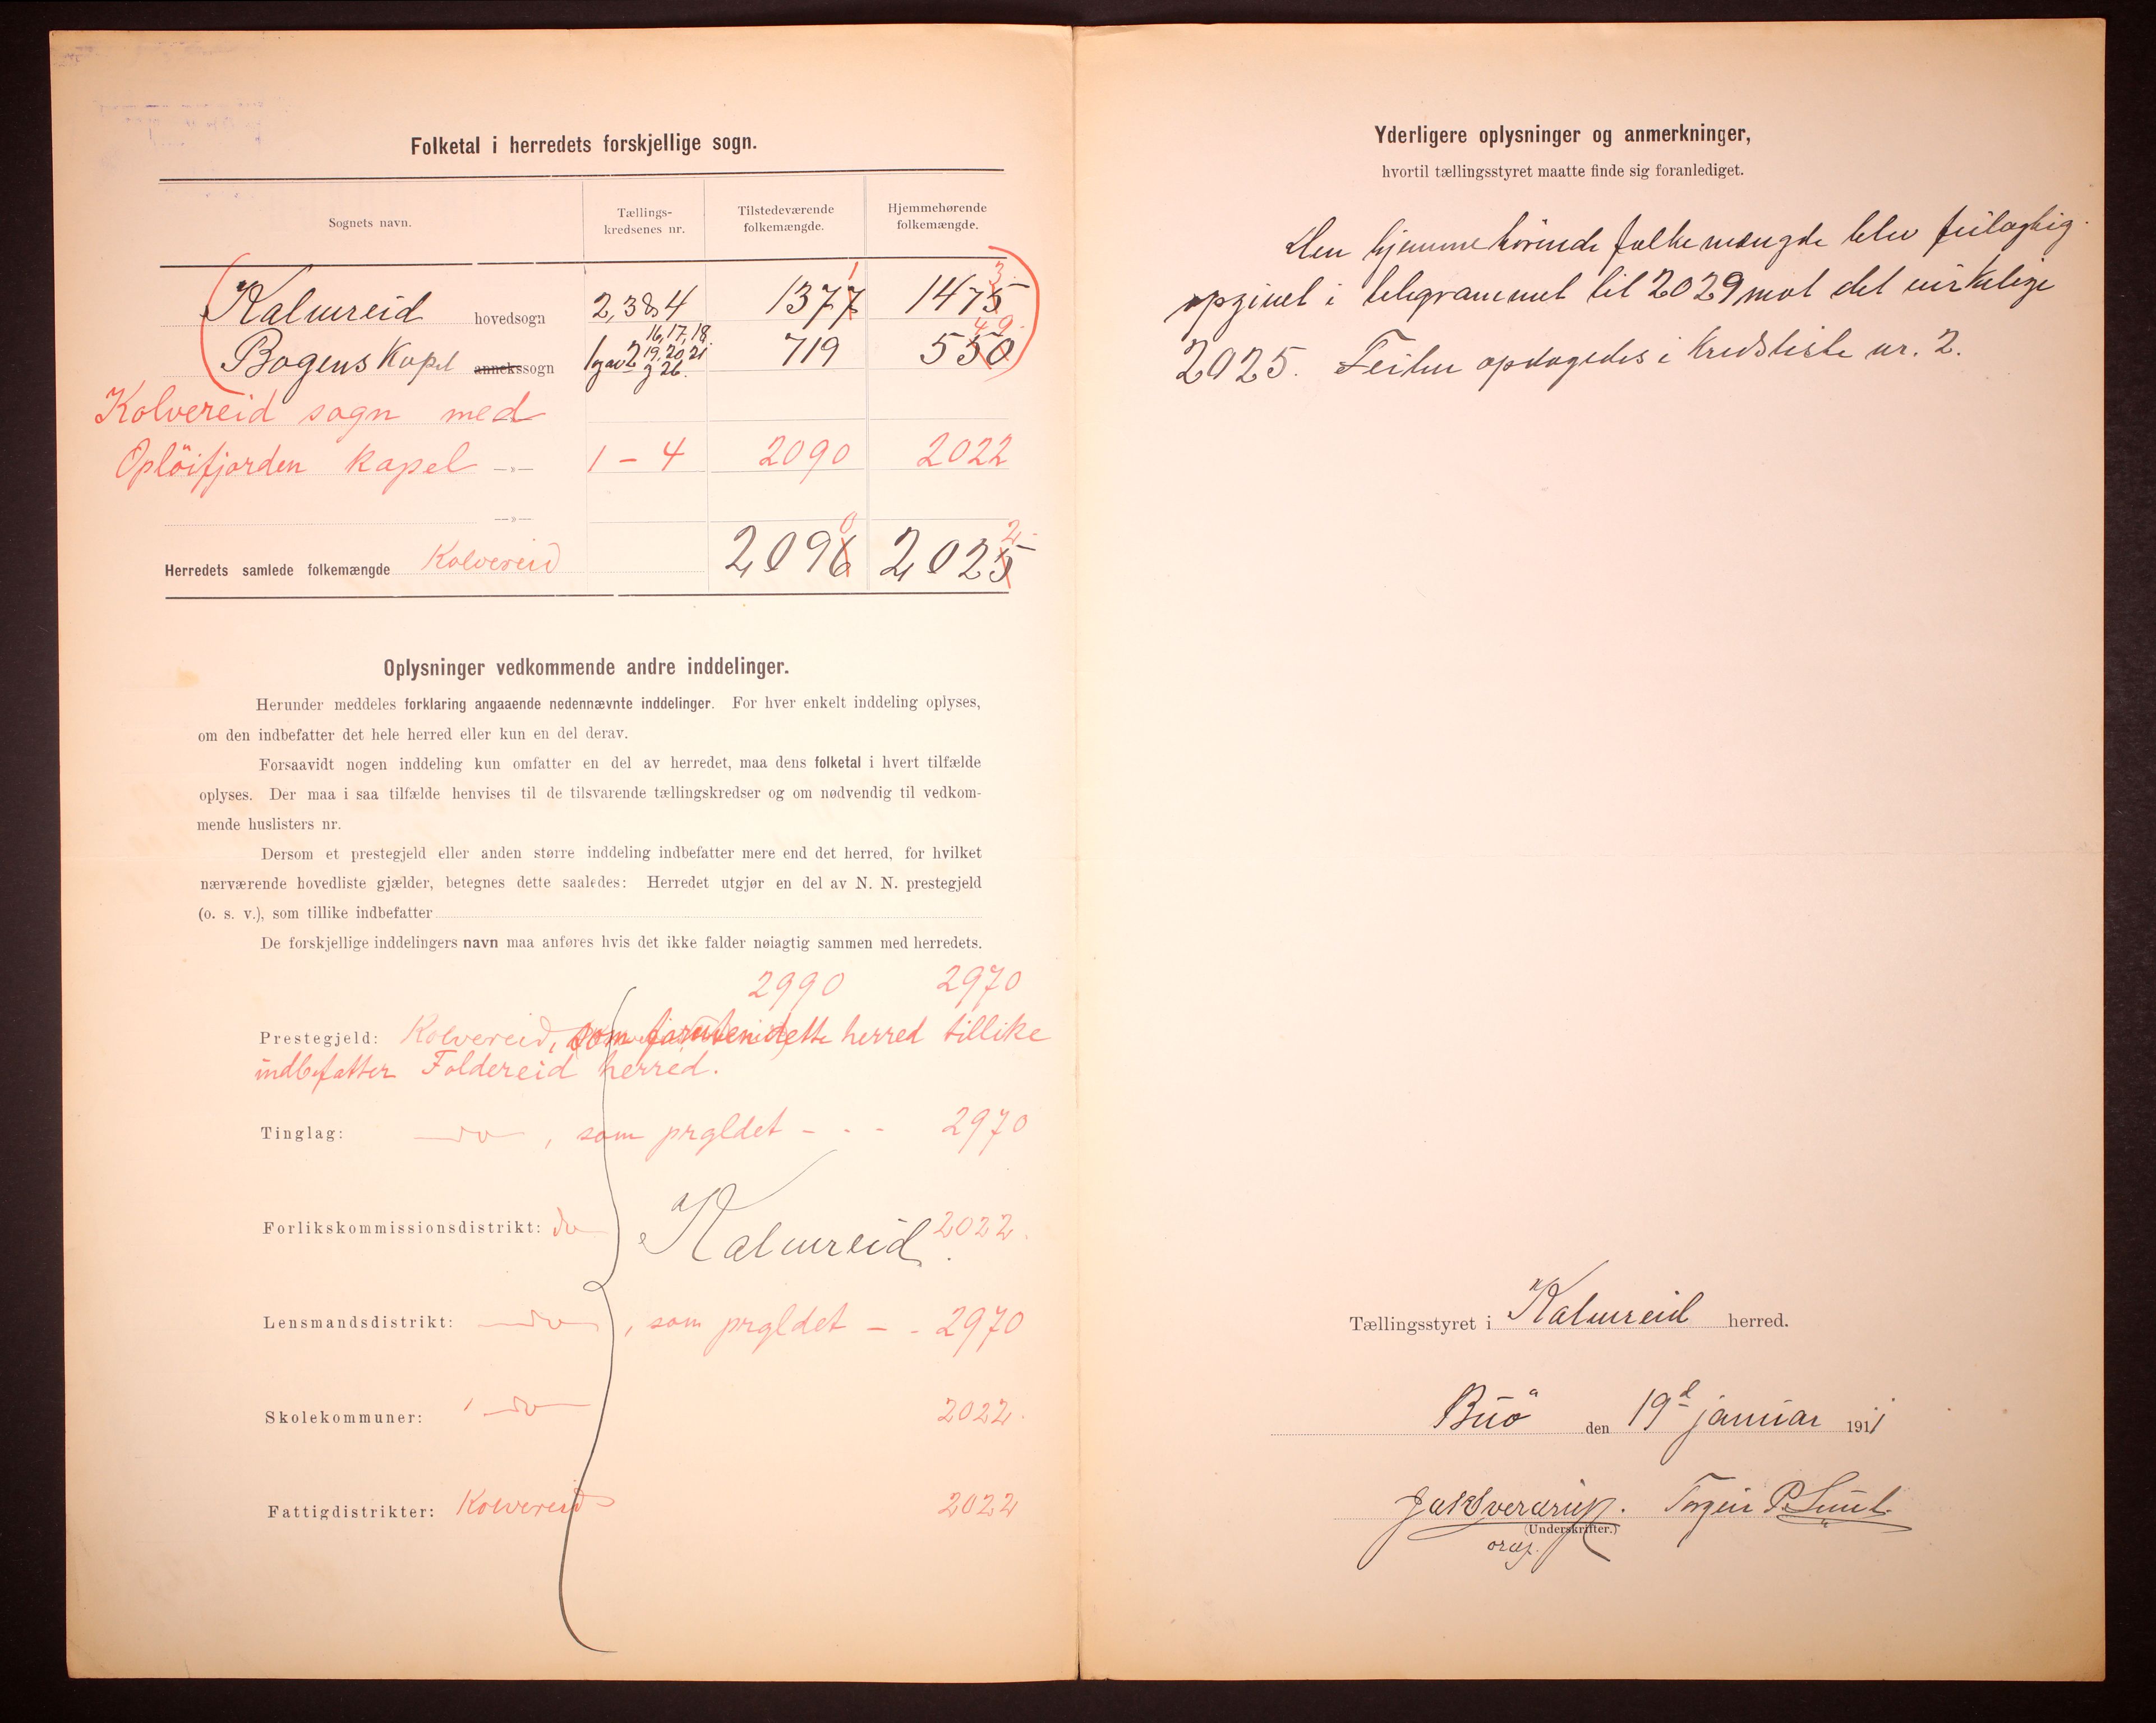 Folketal i herredets forskjellige sogn.
Sognets navn.
Tællings-
kredsenes nr.
Tilstedeværende
folkemængde.
Hjemmehørende
folkemængde.
Kalvereid hovedsogn 2, 3 & 4 1377 1 1475 3
Bogens Kapel annekssogn 1 g av 2 16, 17, 18, 19, 20, 21 g 26. 719 550 49
Kolvereid sogn med
Opløifjorden kapel —»— 1 – 4 2090 2022
—»—
Herredets samlede folkemængde Kolvereid 2096 0 2025 2
Oplysninger vedkommende andre inddelinger.
Herunder meddeles forklaring angaaende nedennævnte inddelinger. For hver enkelt inddeling oplyses,
om den indbefatter det hele herred eller kun en del derav.
Forsaavidt nogen inddeling kun omfatter en del av herredet, maa dens folketal i hvert tilfælde
oplyses. Der maa i saa tilfælde henvises til de tilsvarende tællingskredser og om nødvendig til vedkom-
mende huslisters nr.
Dersom et prestegjeld eller anden større inddeling indbefatter mere end det herred, for hvilket
nærværende hovedliste gjælder, betegnes dette saaledes: Herredet utgjør en del av N. N. prestegjeld
(o. s. v.), som tillike indbefatter
De forskjellige inddelingers navn maa anføres hvis det ikke falder nøiagtig sammen med herredets.
2990 2970
Prestegjeld: Kolvereid, som foruten dette herred tillike
indbefatter Foldereid herred.
Tinglag: — do —, som prgldet – - - 2970
Forlikskommissionsdistrikt: do Kalvereid. 2022.
Lensmandsdistrikt: — do —, som prgldet – - 2970
Skolekommuner: 1 — do — 2022.
Fattigdistrikter: Kolvereid 2022
Yderligere oplysninger og anmerkninger,
hvortil tællingsstyret maatte finde sig foranlediget.
Den hjemmehørende folkemængde blev feilagtig
opgivet i telegrammet til 2029 mot det virkelige
2025. Feilen opdagedes i Kredsliste nr. 2.
Tællingsstyret i Kalvereid herred.
Buö den 19d januar 1911
Jak Sverdrup. Torgeir P. Lund
(Underskrifter.)